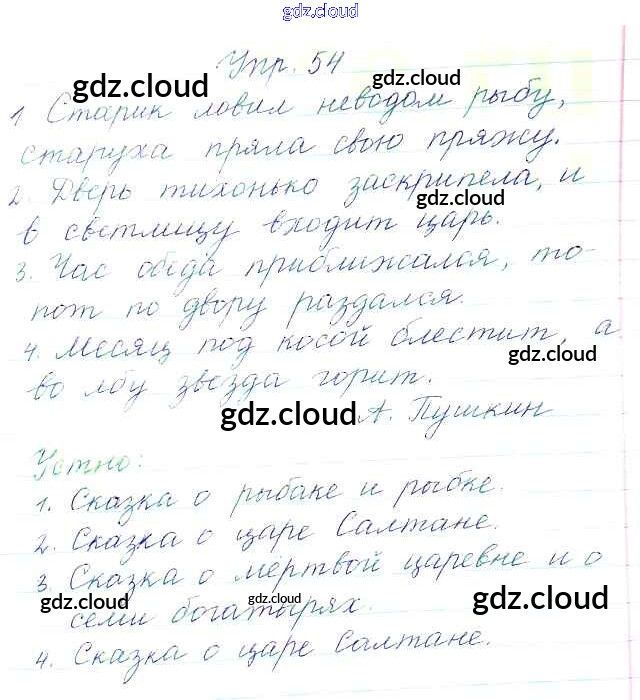 gdz.cloud
Упр. 54
gdz.cloud gdz.cloud
1 Старик ловил неводом рыбу,
старуха пряла свою пряжу.
2. Дверь тихонько заскрипела, и
gdz.cloud
в светлицу входит царь.
3. Час обеда приближался, то-
пот по двору раздался.
4. Месяц под косой блестит, а
gdz.cloud
во лбу звезда горит.
gdz.cloud
А. Пушкин
Устно:
1. Сказка о рыбаке и рыбке.
2. Сказка о царе Салтане.
3. Сказка о мёртвой царевне и о
gdz.cloud gdz.cloud gdz.cloud
семи богатырях.
4. Сказка о царе Салтане.